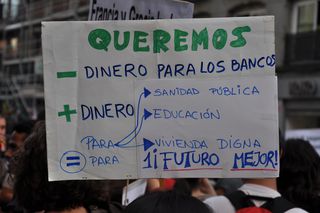 Francia y Grecia
QUEREMOS
- DINERO PARA LOS BANCOS
+ DINERO PARA
SANIDAD PÚBLICA
EDUCACIÓN
VIVIENDA DIGNA
= PARA 1 ¡FUTURO MEJOR!